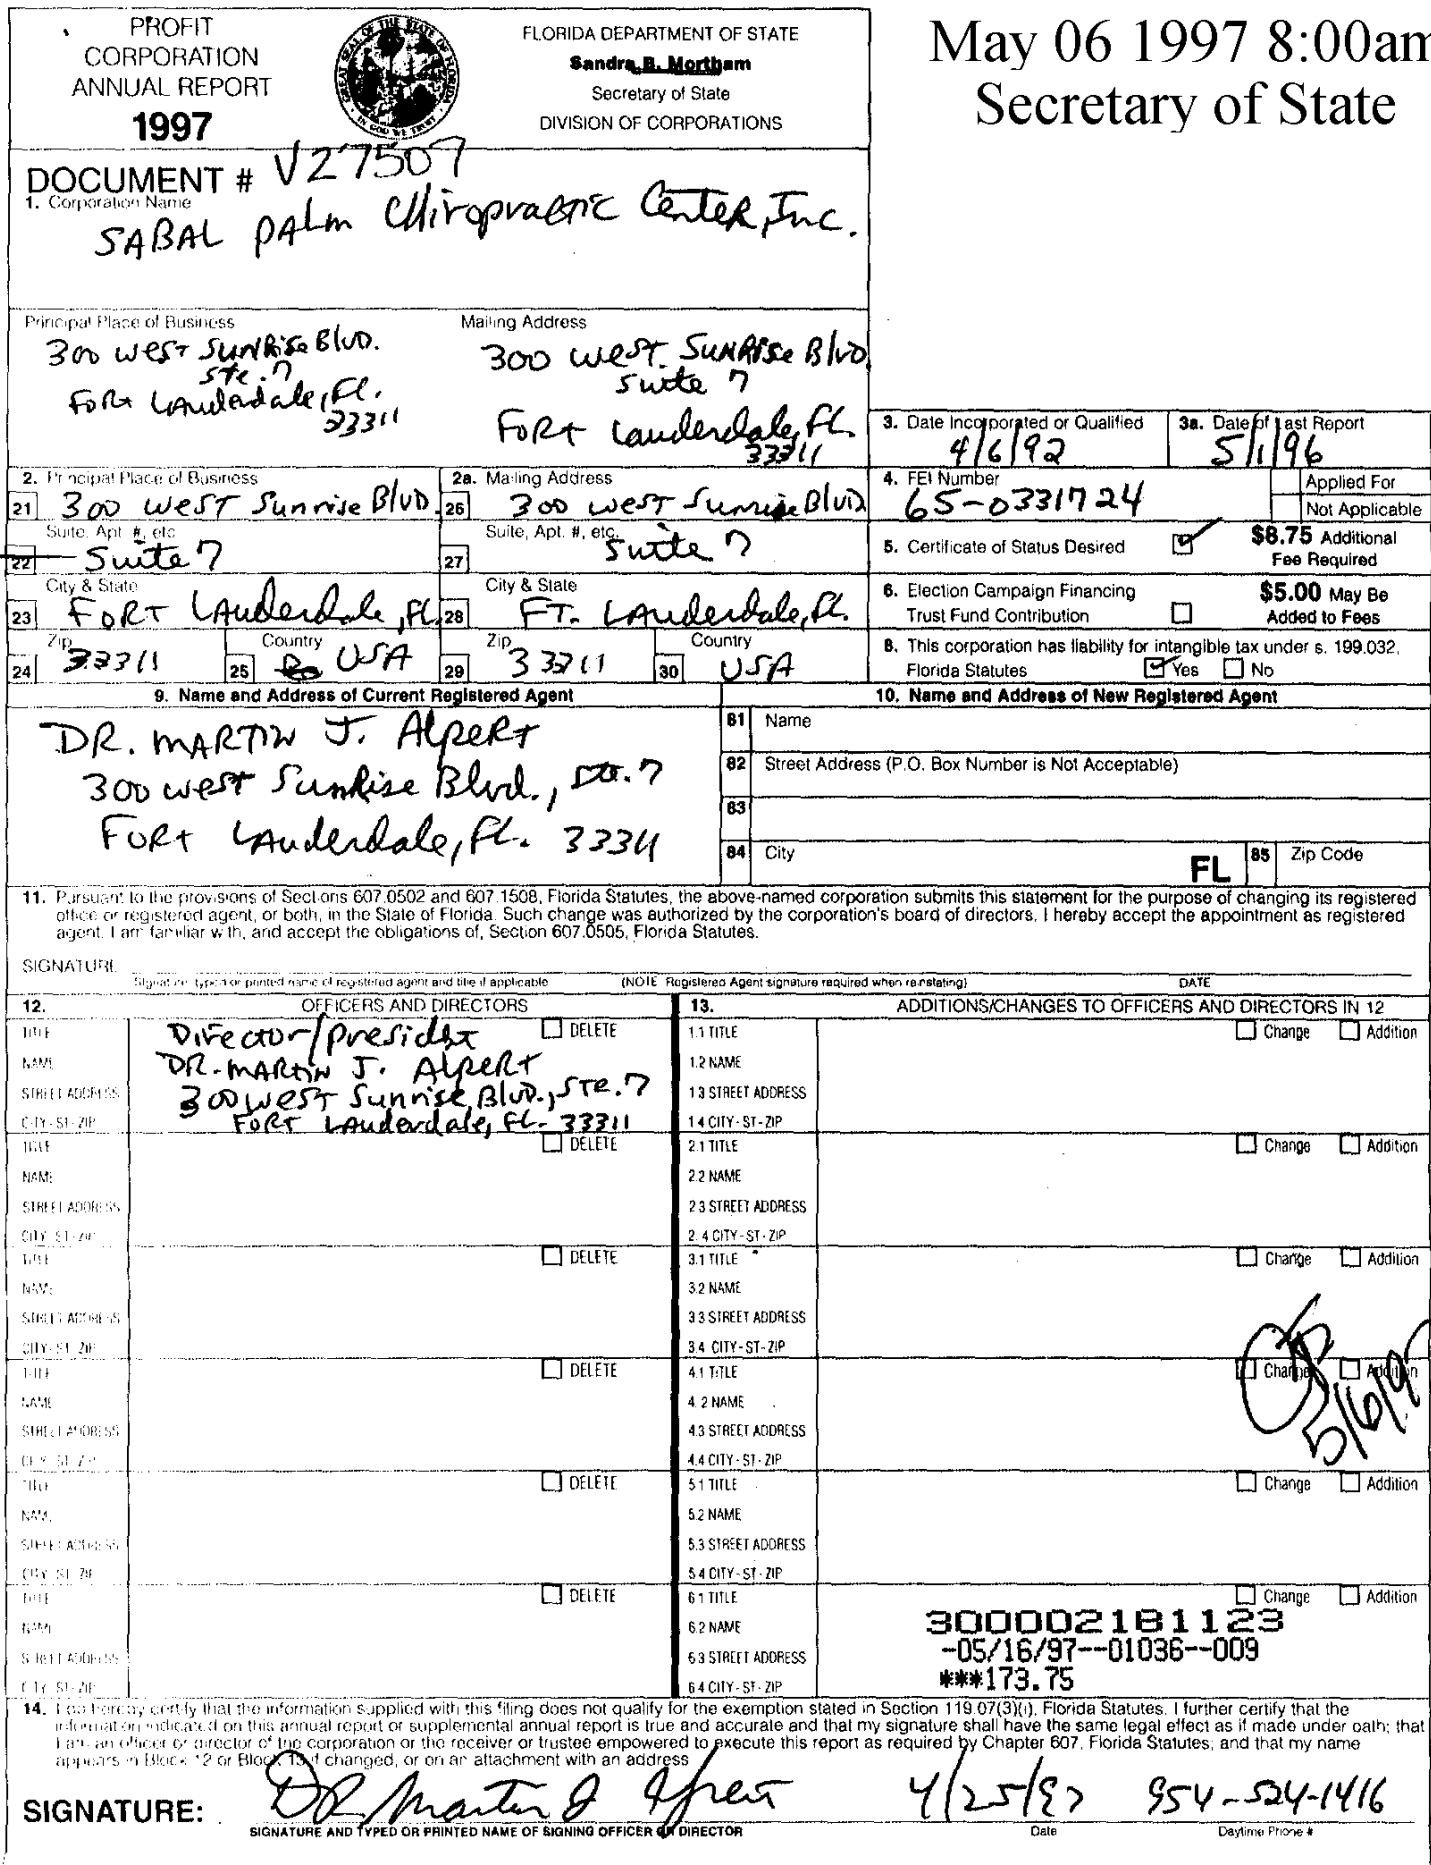 PROFIT
CORPORATION
ANNUAL REPORT
1997
FLORIDA DEPARTMENT OF STATE
Sandra B. Mortham
Secretary of State
DIVISION OF CORPORATIONS
May 06 1997 8:00am
Secretary of State
DOCUMENT # V27507
1. Corporation Name
SABAL PALM Chiropractic Center, Inc.
Principal Place of Business
300 West Sunrise Blvd.
Ste. 7
Fort Lauderdale, Fl.
33311
Mailing Address
300 West Sunrise Blvd
Suite 7
Fort Lauderdale, Fl.
33311
3. Date Incorporated or Qualified
4/6/92
3a. Date of Last Report
5/1/96
2. Principal Place of Business
21 300 West Sunrise Blvd.
2a. Mailing Address
26 300 West Sunrise Blvd
4. FEI Number
65-0331724
Applied For
Not Applicable
Suite, Apt. #, etc.
22 Suite 7
Suite, Apt. #, etc.
27 Suite 7
5. Certificate of Status Desired
$8.75 Additional
Fee Required
City & State
23 Fort Lauderdale, Fl.
City & State
28 FT. Lauderdale, Fl.
6. Election Campaign Financing
Trust Fund Contribution
$5.00 May Be
Added to Fees
Zip
24 33311
Country
25 USA
Zip
29 33311
Country
30 USA
8. This corporation has liability for intangible tax under s. 199.032,
Florida Statutes Yes No
9. Name and Address of Current Registered Agent
DR. MARTIN J. Alpert
300 West Sunrise Blvd., Ste. 7
Fort Lauderdale, Fl. 33311
10. Name and Address of New Registered Agent
81 Name
82 Street Address (P.O. Box Number is Not Acceptable)
83
84 City FL 85 Zip Code
11. Pursuant to the provisions of Sections 607.0502 and 607.1508, Florida Statutes, the above-named corporation submits this statement for the purpose of changing its registered
office or registered agent, or both, in the State of Florida. Such change was authorized by the corporation's board of directors. I hereby accept the appointment as registered
agent. I am familiar with, and accept the obligations of, Section 607.0505, Florida Statutes.
SIGNATURE
Signature, typed or printed name of registered agent and title if applicable (NOTE Registered Agent signature required when reinstating) DATE
12. OFFICERS AND DIRECTORS
TITLE Director/President DELETE
NAME DR. MARTIN J. Alpert
STREET ADDRESS 300 West Sunrise Blvd., STE. 7
CITY-ST-ZIP FORT Lauderdale, FL. 33311
TITLE DELETE
NAME
STREET ADDRESS
CITY-ST-ZIP
TITLE DELETE
NAME
STREET ADDRESS
CITY-ST-ZIP
TITLE DELETE
NAME
STREET ADDRESS
CITY-ST-ZIP
TITLE DELETE
NAME
STREET ADDRESS
CITY-ST-ZIP
TITLE DELETE
NAME
STREET ADDRESS
CITY-ST-ZIP
13. ADDITIONS/CHANGES TO OFFICERS AND DIRECTORS IN 12
1.1 TITLE Change Addition
1.2 NAME
1.3 STREET ADDRESS
1.4 CITY-ST-ZIP
2.1 TITLE Change Addition
2.2 NAME
2.3 STREET ADDRESS
2.4 CITY-ST-ZIP
3.1 TITLE Change Addition
3.2 NAME
3.3 STREET ADDRESS
3.4 CITY-ST-ZIP
4.1 TITLE Change Addition
4.2 NAME
4.3 STREET ADDRESS
4.4 CITY-ST-ZIP
5.1 TITLE Change Addition
5.2 NAME
5.3 STREET ADDRESS
5.4 CITY-ST-ZIP
6.1 TITLE Change Addition
6.2 NAME
6.3 STREET ADDRESS
6.4 CITY-ST-ZIP
300002181123
-05/16/97--01036--009
***173.75
14. I do hereby certify that the information supplied with this filing does not qualify for the exemption stated in Section 119.07(3)(i), Florida Statutes. I further certify that the
information indicated on this annual report or supplemental annual report is true and accurate and that my signature shall have the same legal effect as if made under oath; that
I am an officer or director of the corporation or the receiver or trustee empowered to execute this report as required by Chapter 607, Florida Statutes; and that my name
appears in Block 12 or Block 13 if changed, or on an attachment with an address
SIGNATURE: DR Martin J Alpert 4/25/97 954-524-1416
SIGNATURE AND TYPED OR PRINTED NAME OF SIGNING OFFICER OR DIRECTOR Date Daytime Phone #